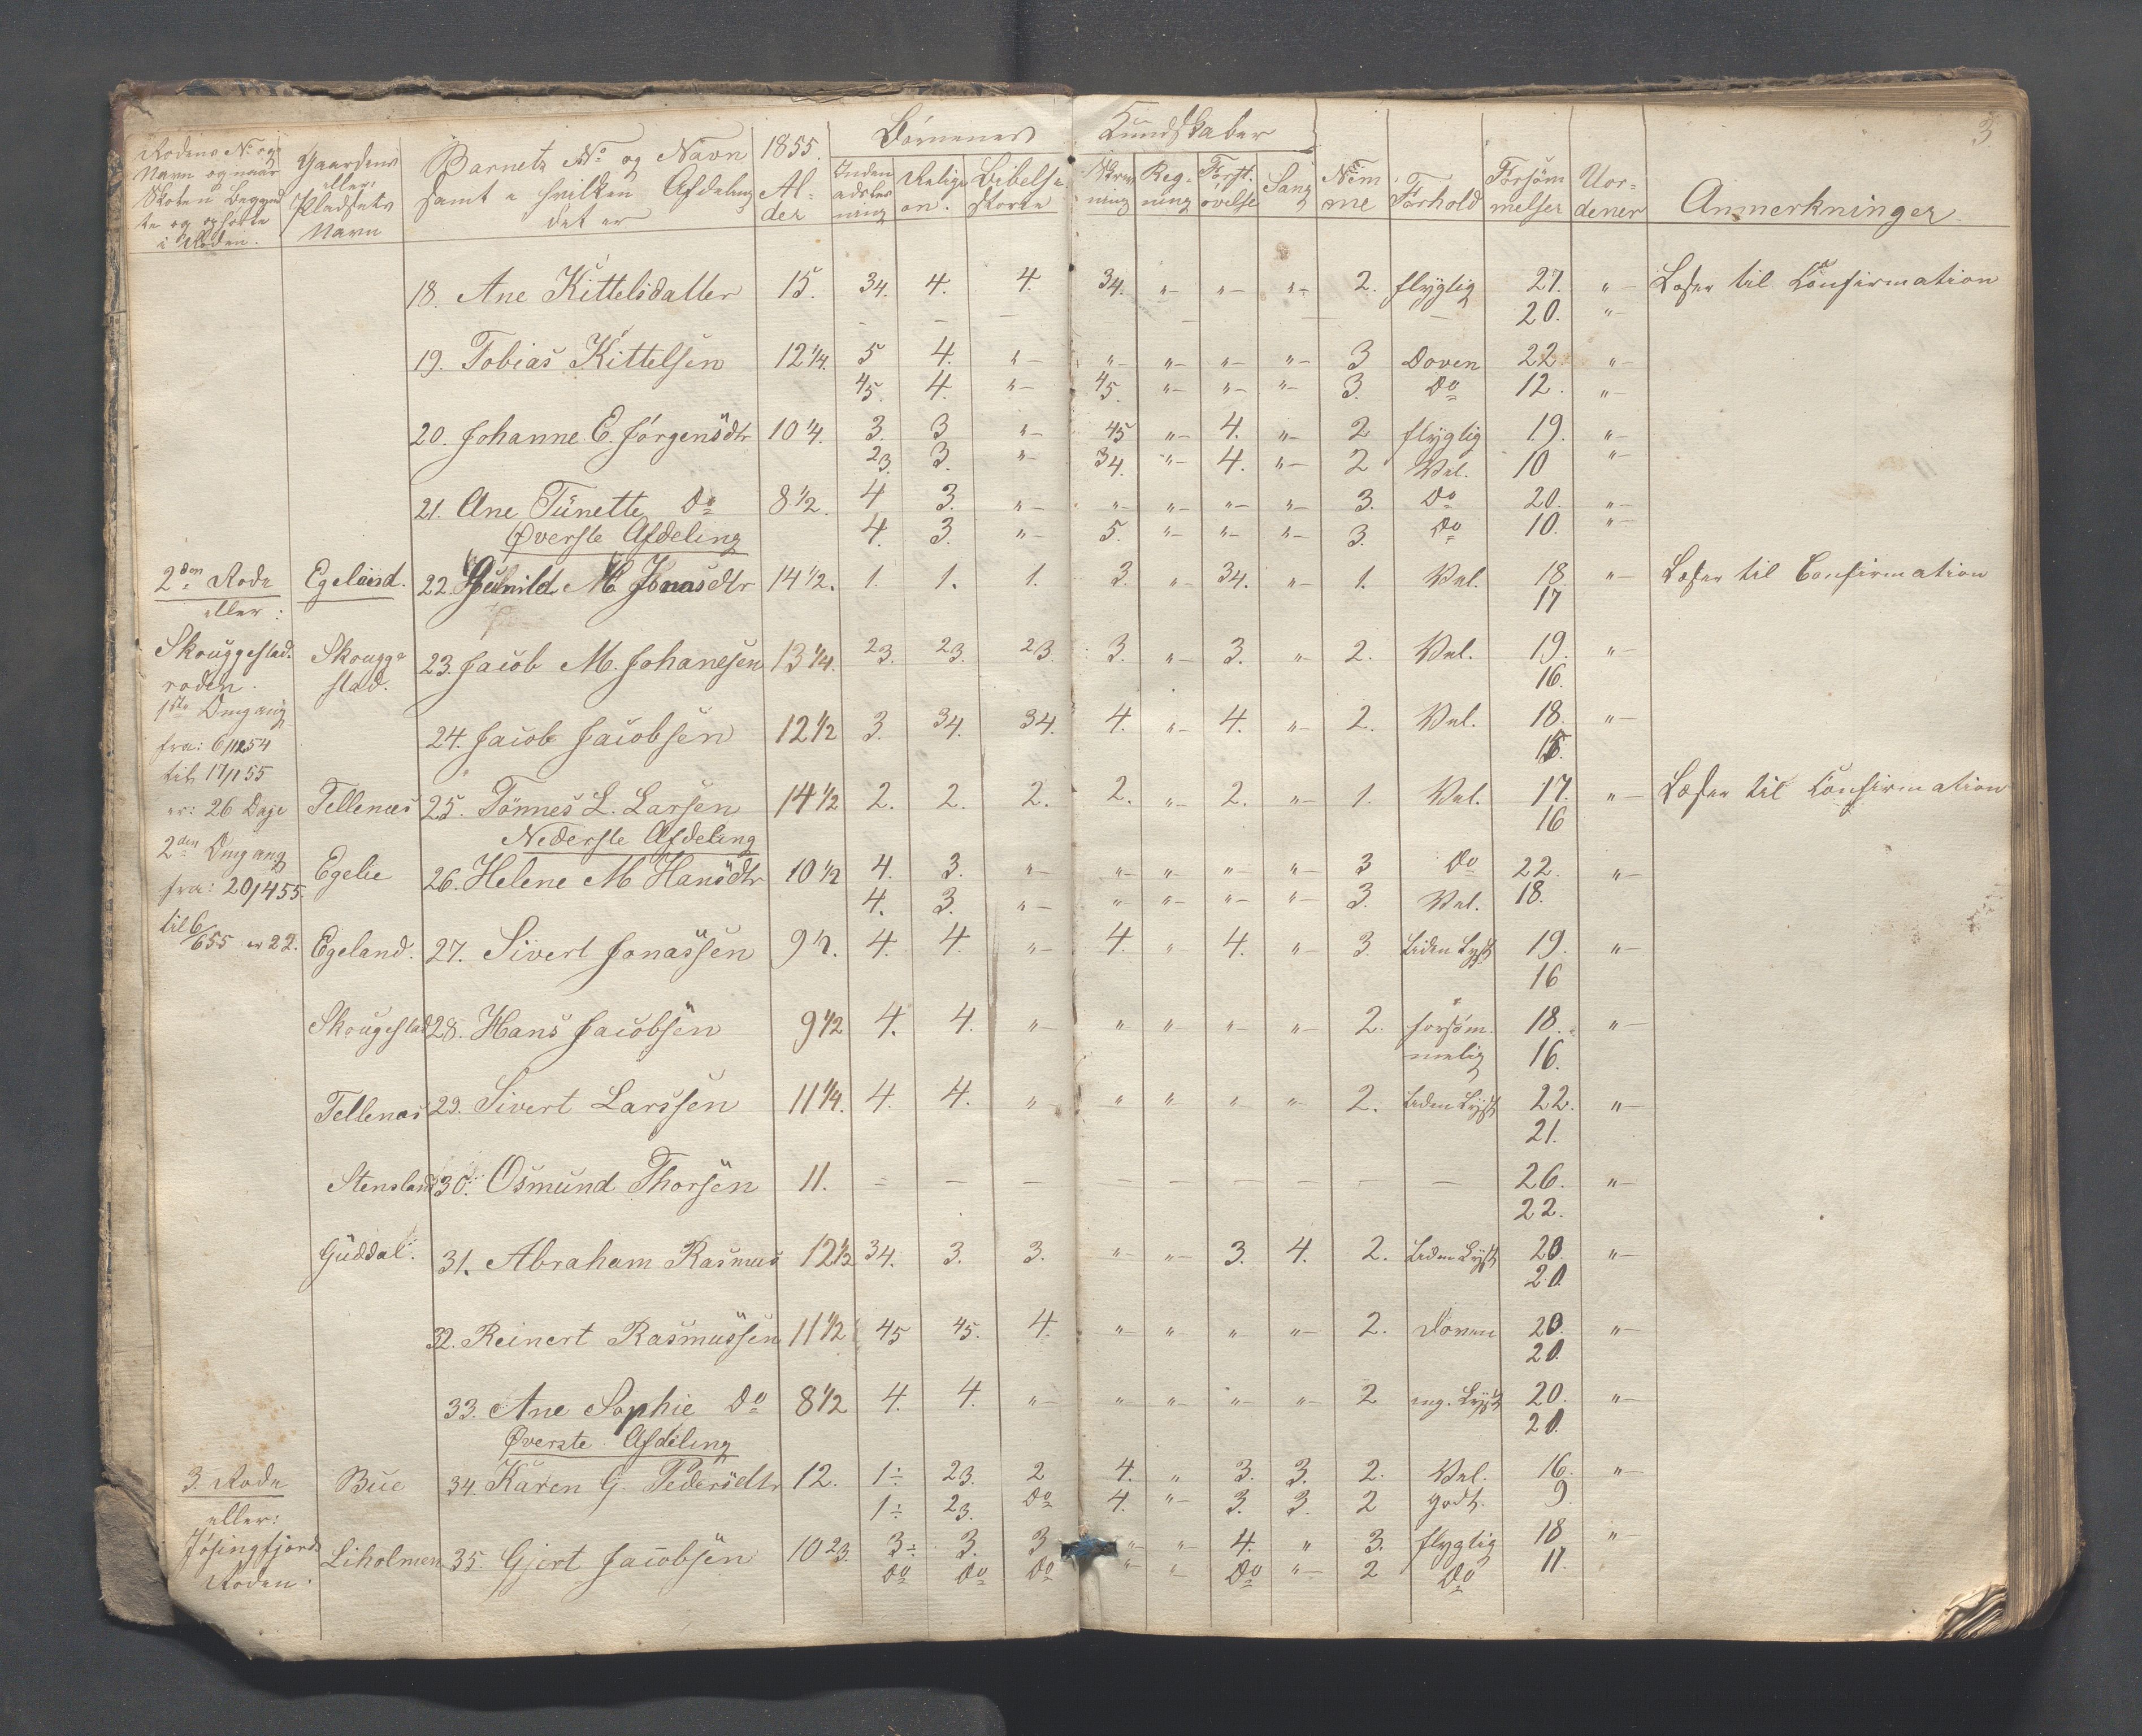 3
Rodens No og Navn og naar Skolen Begynd te og ophørte i Roden.
Gaardens eller Pladsets Navn
Barnets No og Navn samt i hvilken Afdeling det er
1855. Al- der
Børnenes Kundskaber
Inden adsles ning
Religi on.
Bibelhi storie
Skriv ning
Reg- ning
Forst. øvelse
Sang
Nem me
Forhold
Forsøm melser
Uor- dener
Anmerkninger.
18. Ane Kittelsdatter 15. 34. 4. 4. 34. "- "- "- 2. flygtig 27. "- Læser til Confirmation
- - - - - - 20. "-
19. Tobias Kittelsen 12 1/4. 5 4. "- "- "- "- "- 3 Doven 22 "-
45. 4. "- 45. "- "- "- 3. Do 12. "-
20. Johanne E. Jørgensdtr 10 1/4. 3. 3 "- 45 "- 4. "- 2 flygtig 19. "-
23. 3. "- 34. "- 4. "- 2 Vel. 10 "-
21. Ane Tünette Do 8 1/2. 4 3. "- "- "- "- "- 3. Do 20. "-
Øverste Afdeling 4. 3. "- 5. "- "- "- 3. Do 10. "-
2den Rode Egeland. 22. Gunild M. Jonasdtr 14 1/2. 1. 1. 1. 3. "- 34. "- 1. Vel. 18. "- Læser til Confirmation
eller: 17
Skouggestad. Skougge 23. Jacob M. Johanesen 13 1/4. 23. 23. 23. 3. "- 3. "- 2. Vel. 19. "-
roden. stad. 16.
1ste Omgang 24. Jacob Jacobsen 12 1/2 3. 34. 34. 4. "- 4. "- 2. Vel. 18. "-
fra: 6/1254 15.
til 17/1 55
er: 26 Dage Tellenæs 25. Tønnes L. Larsen 14 1/2 2. 2. 2. 2. "- 2. "- 1. Vel. 17. "- Læser til Confirmation
Nederste Afdeling 16
2den Omgang Egelie 26. Helene M Hansdtr 10 1/2 4. 3. "- "- "- "- "- 3 Do 22. "-
fra: 20/4 55. 4. 3. "- "- "- "- "- 3. Vel. 18.
til 6/6 55 er 22. Egeland. 27. Sivert Jonassen 9 1/2. 4. 4. "- 4. " 4. "- 3. Liden Lyst 19. "-
16
Skougestad 28. Hans Jacobsen 9 1/2 4. 4. "- " "- "- "- 2. forsøm- 18. "-
melig 16.
Tellenæs 29. Sivert Larssen 11 1/4. 4. 4. "- " "- "- "- 2. Liden Lyst 22. "-
21.
Stensland 30. Osmund Thorsen 11. - - - - - - - - - 26. "-
22.
Güddal. 31. Abraham Rasmus 12 1/2 34. 3. 3. "- "- 3. 4. 2. Liden Lyst 20. "-
20.
32. Reinert Rasmussen 11 1/2 45 45. 4. "- "- "- "- 2. Doven 20. "-
20.
33. Ane Sophie Do 8 1/2 4. 4. "- " "- "- "- 2 ing. Lyst 20. "-
Øverste Afdeling 20.
3. Rode Bue 34. Karen G. Pedersdtr 12. 1÷ 23. 2 4. " 3. 3. 2. Vel. 16. "-
eller: 1÷ 23. Do 4. "- 3. 3. 2 godt. 9.
Jøsingfjords Liholmen 35. Gjert Jacobsen 10 23. 3÷ 3. 3 "- "- 4. " 3. flygtig 18 "-
Roden. Do Do Do "- "- Do "- 2 Do 11.